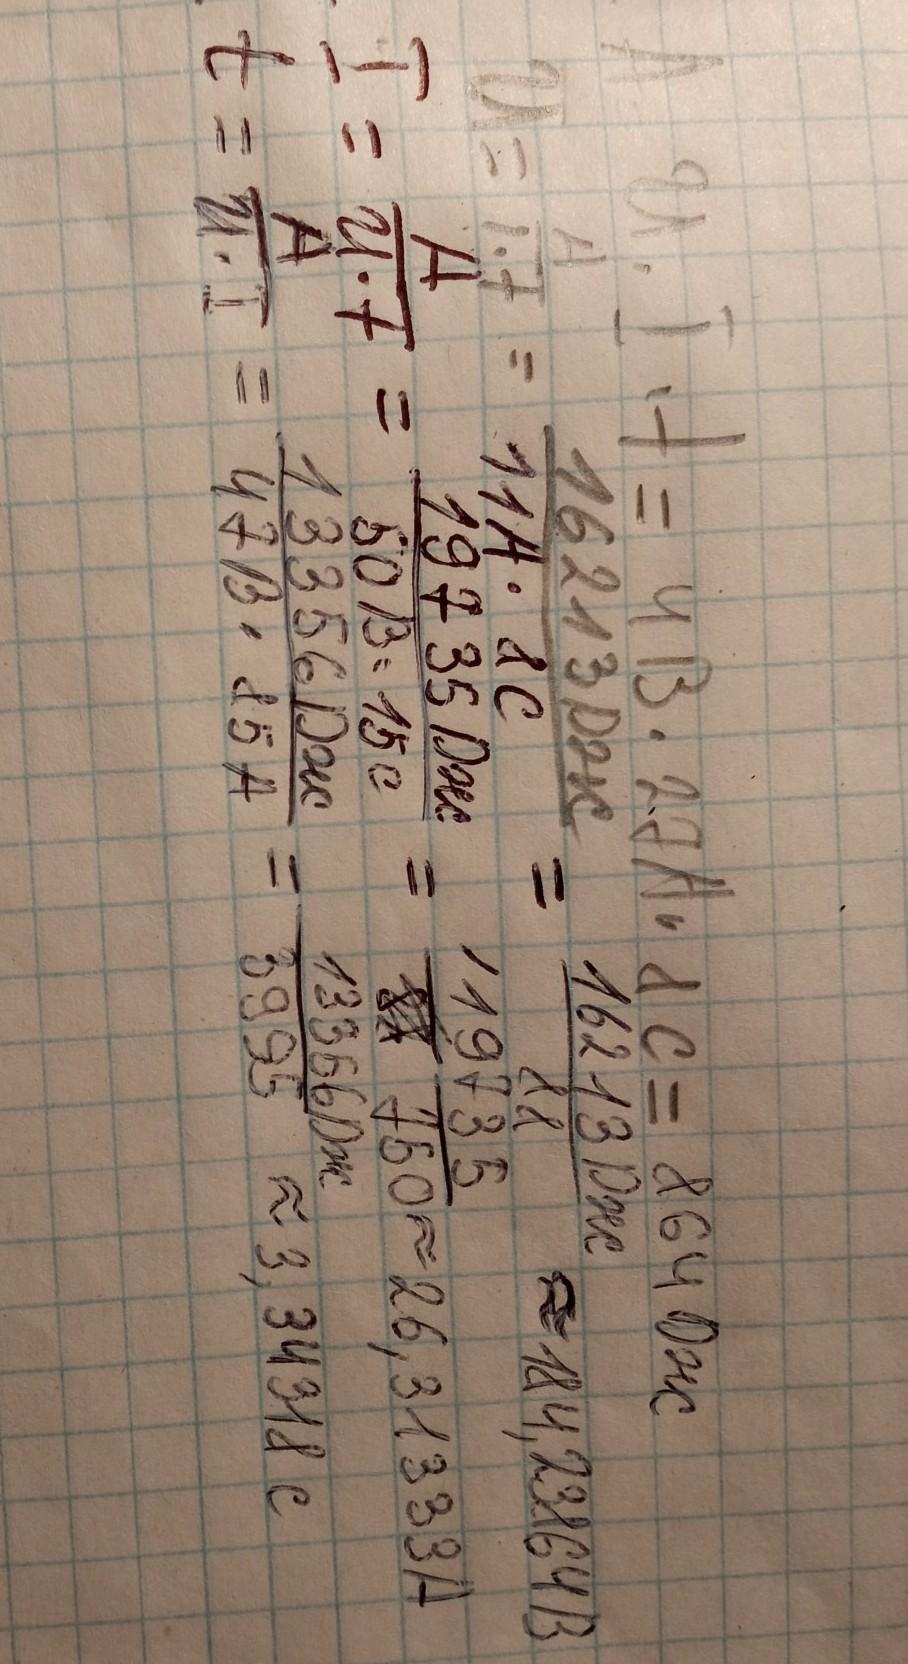 A U·I·t = 4В·27А·8С = 864 Дж
U = A/I·t = 16213Дж/11А·8С = 16213Дж/88 ≈ 184,23864В
I = A/U·t = 19735Дж/50В·15с = 19735/750 ≈ 26,31333А
t = A/U·I = 13356Дж/47В·85А = 13356Дж/3995 ≈ 3,34318с